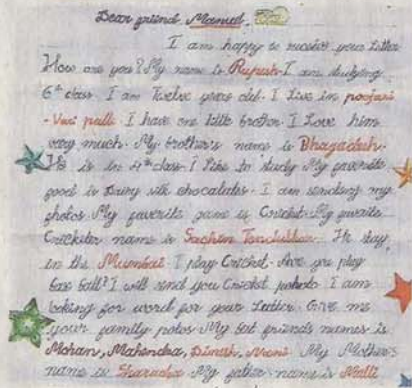 Dear friend Manuel.
I am happy to receive your letter
How are you? My name is Rupesh. I am studying
6th class. I am Twelve years old. I Live in poojari
- Vari palli I have one little brother. I Love him
very much. My brother's name is Bhagadesh.
He is in 4th class. I like to study My favorite
food is Dairy silk chocalates. I am sending my
photos My favorite game is Cricket. My favorite
Cricketer name is Sachin Tendulkar. He stay
in the Mumbai. I play Cricket. Are you play
bas ball? I will send you Cricket photo. I am
looking for word for your Letter. Give me
your family potos My bst friends names is
Mohan, Mahendra, Dinesh, My Mother's
name is Sharada My father name is Malli